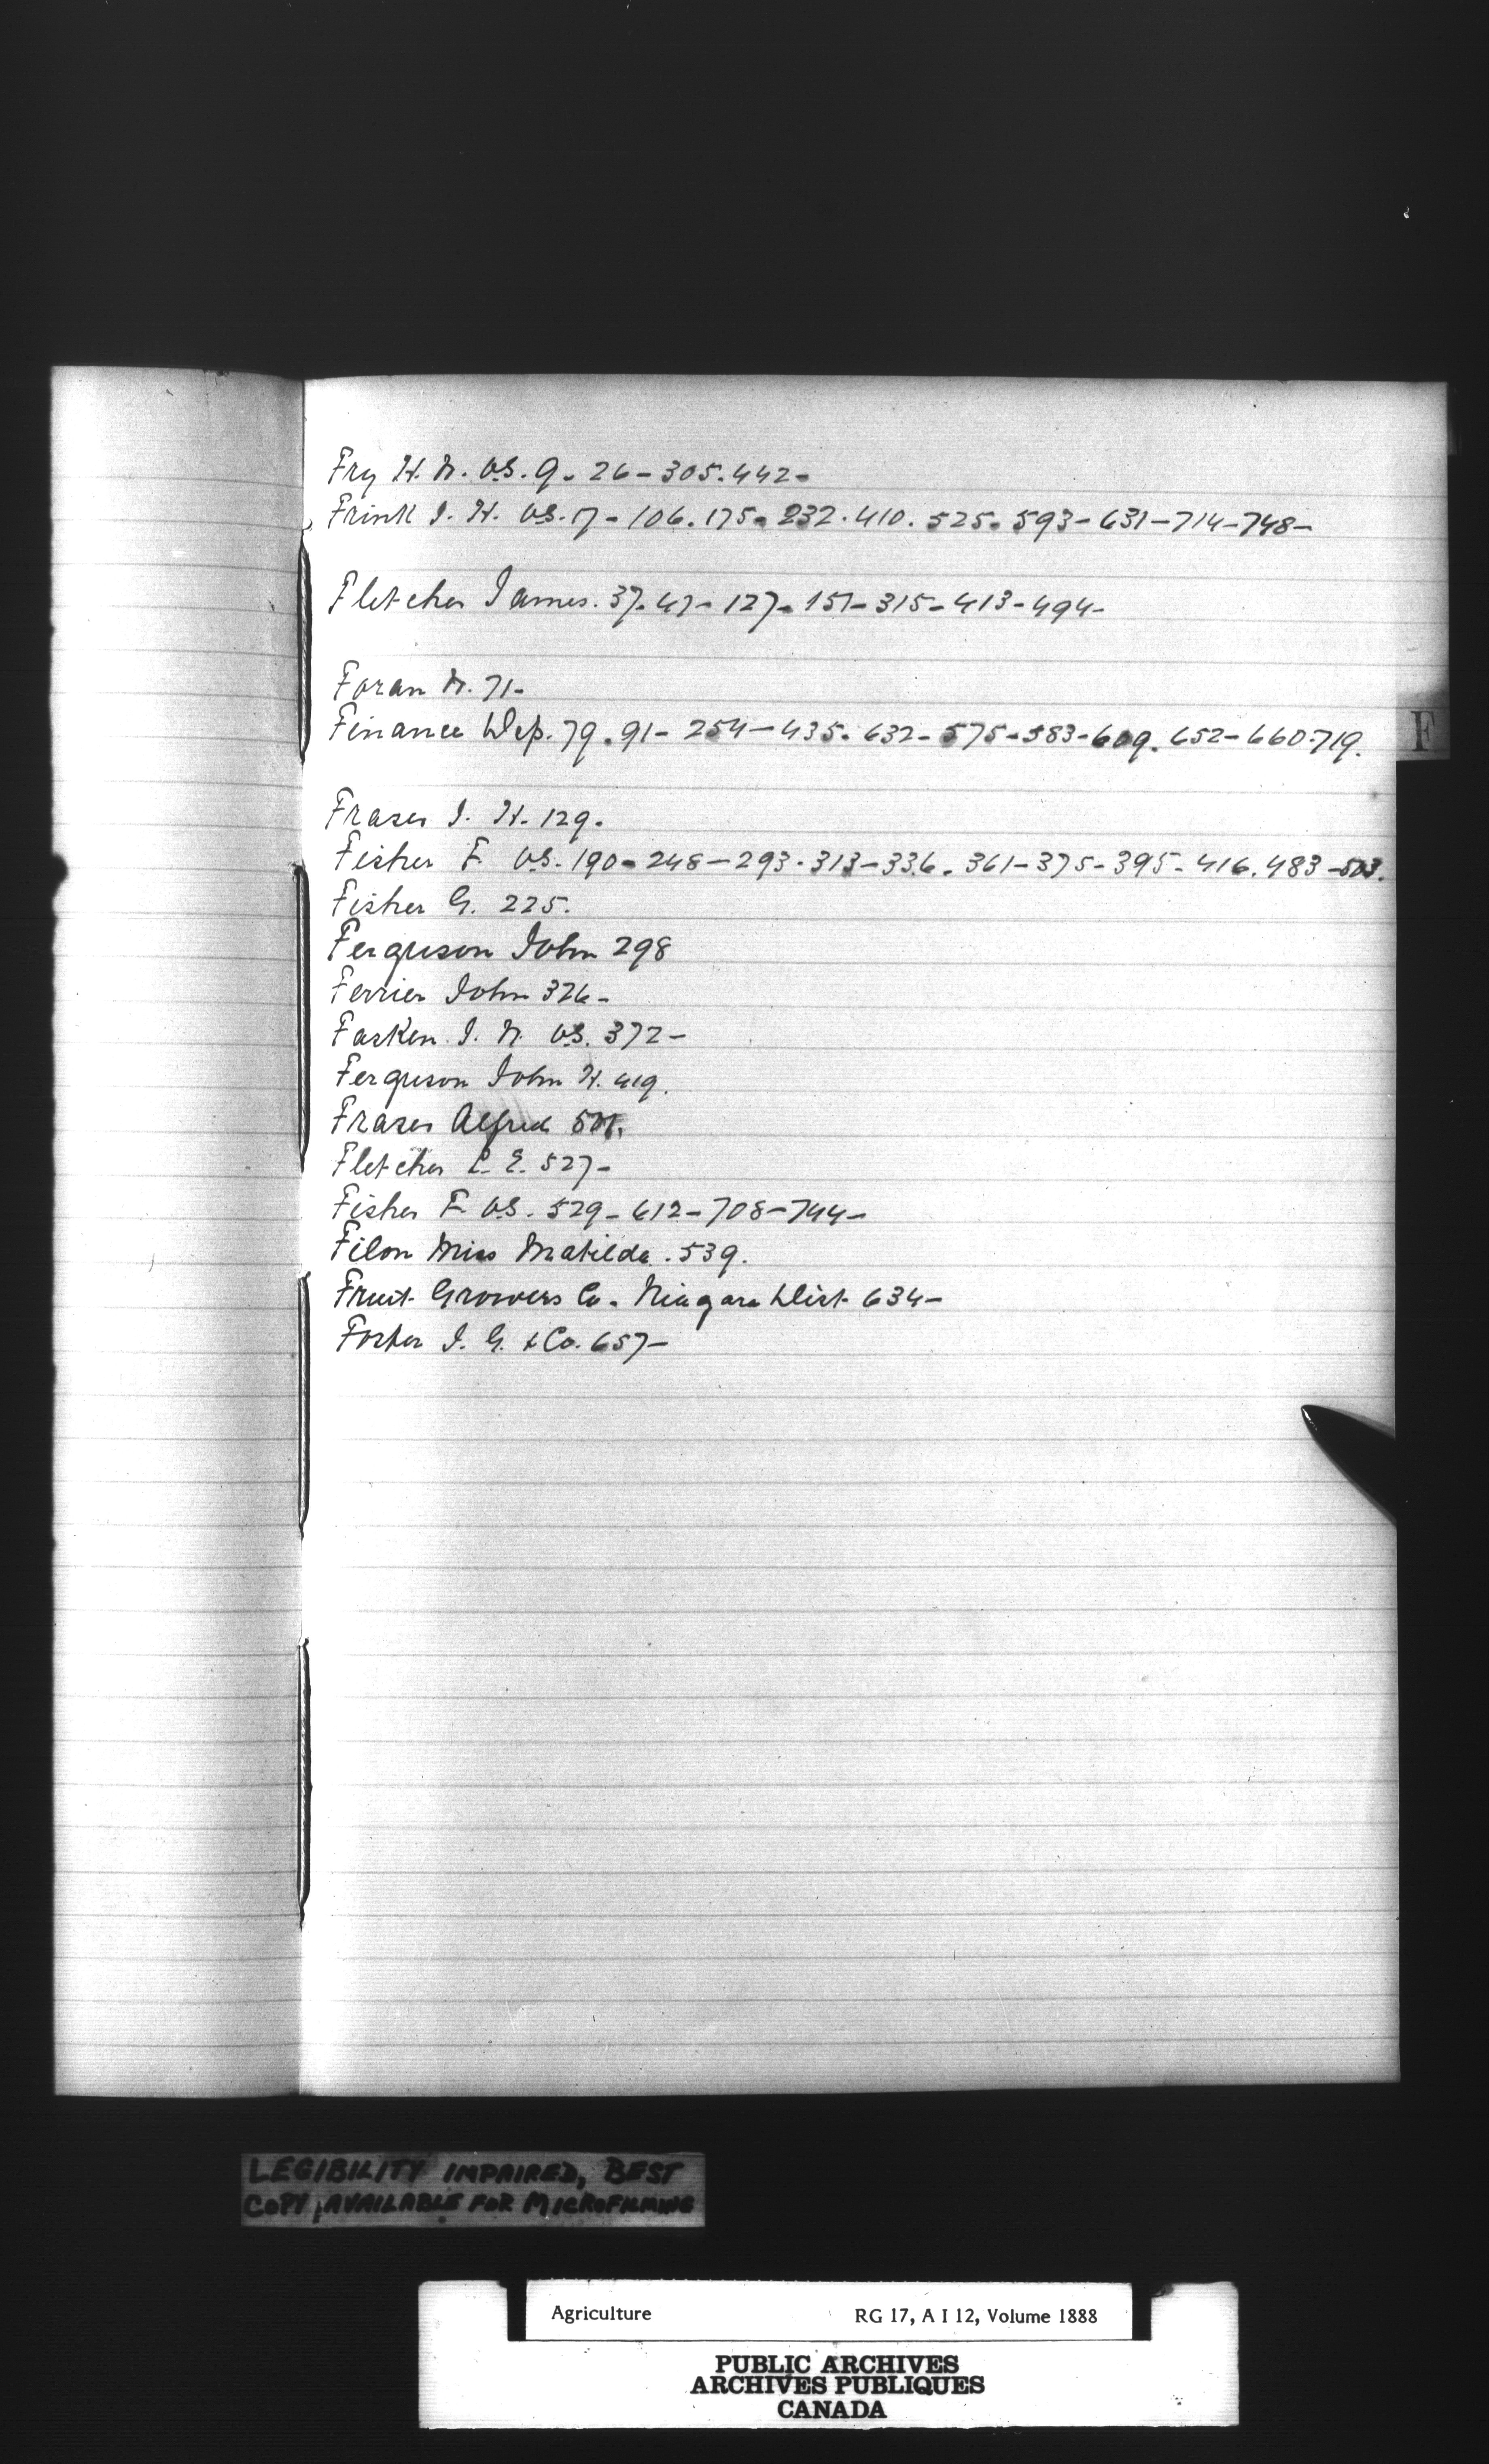 Fry H. N. V.S. 9. 26-305.442-
Frink J. H. V.S. 17-106.175-232.410.525-593-631-714-748-
Fletcher James. 37-47-127-151-315-413-494-
Foran N. 71-
Finance Dep. 79.91-254-435.632-575-583-609.652-660.719.
F
Fraser J. H. 129.
Fisher F. V.S. 190-248-293.313-336.361-375-395-416.483-503.
Fisher G. 225.
Ferguson John 298
Ferrier John 326-
Fasken J. N. V.S. 372-
Ferguson John H. 419.
Fraser Alfred
Fletcher C. E. 527-
Fisher F. V.S. 529-612-708-744-
Filon Miss Matilda. 539.
Fruit Growers Co. Niagara Dist 634-
Foster J. G. & Co. 657-
LEGIBILITY IMPAIRED, BEST
COPY AVAILABLE FOR MICROFILMING
Agriculture RG 17, A I 12, Volume 1888
PUBLIC ARCHIVES
ARCHIVES PUBLIQUES
CANADA